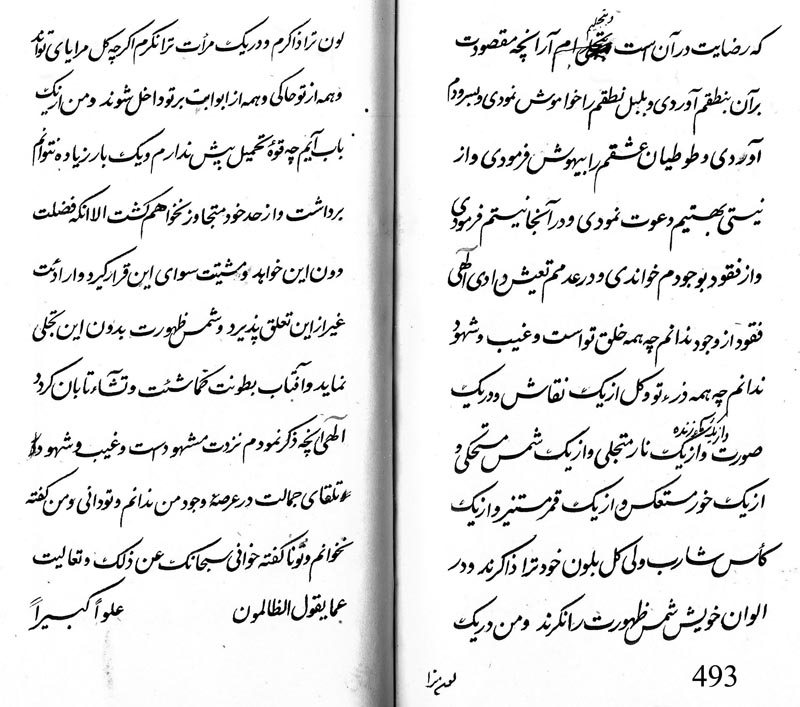 که رضایت در آن است و بتجلیم ام آرا آنچه مقصودت
بر آن بنطقم آوردی و بلبل نطقم را خواموش نمودی و بسرودم
آوردی و طوطیان عشقم را بیهوش فرمودی و از
نیستی بهستیم دعوت نمودی و در آنجا نیستم فرمودی
و از فقود بوجودم خواندی و در عدمم تعیش دادی آلهی
فقود از وجود ندانم چه همه خلق تو است و غیب و شهود
ندانم چه همه ذرء تو و کل از یک نقاش و در یک
صورت و از یک نار متجلی و از یک شمس مستحکی و
از یک خور مستعکس و از یک قمر مستنیر و از یک
کأس شارب ولی کل بلون خود ترا ذاکرند و در
الوان خویش شمس ظهورت را نگرند و من در یک
493
لون ترا ذاکرم و در یک مرأت ترا نگرم اگر چه کل مرایای تواند
و همه از تو حاکی و همه از ابوابت بر تو داخل شوند و من از یک
باب آیم چه قوۀ تحمیل بیش ندارم و یک بار زیاده نتوانم
برداشت و از حد خود متجاوز نخواهم گشت الا انکه فضلت
دون این خواهد و مشیتت سوای این قرار گیرد و ارادئت
غیر از این تعلق پذیرد و شمس ظهورت بدون این تجلی
نماید و آفتاب بطونت کما شئت و تشاء تابان گردد
الهی آنچه ذکر نمودم نزدت مشهود است و غیب و شهود
تلقای جمالت در عرصۀ وجود من ندانم و تو دانی و من گفته
نخوانم و تو ناگفته خوانی سبحانک عن ذلک و تعالیت
عما یقول الظالمون علواً کبیراً